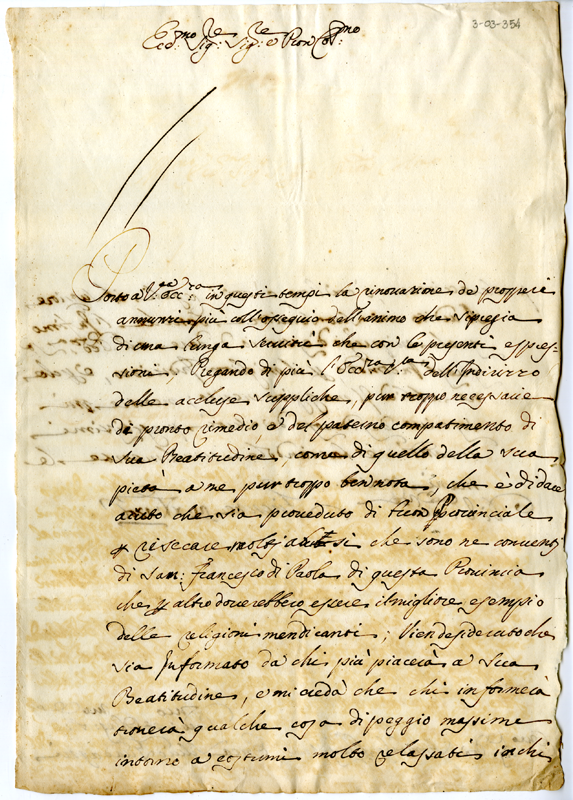 3-03-354
Ecc.mo Sig.re Sig.re e Pron Col.mo
Porto a V.ra Ecc.za in questi tempi la rinovazione de prosperi
annunzi più coll'ossequio dell'animo che si pregia
di una lunga servitù che con le presenti espres-
sioni, Pregando di più l'Ecc.za V.ra dell'Indirizzo
delle accluse suppliche, pur troppo necessarie
di pronto rimedio, e del paterno compatimento di
sua Beatitudine, come di quello della sua
pietà a me pur troppo ben nota, che è di dare
aiuto che sia proveduto di buon Provinciale
p risecare molti che sono ne conventi
di San: Francesco di Paola di questa Provincia
che p altro doverebbero essere il migliore esempio
delle religioni mendicanti; Vien desiderato che
sia Informato da chi più piacerà a sua
Beatitudine, e mi creda che chi informerà
troverà qualche cosa di peggio massime
intorno a costumi molto relassati in chi